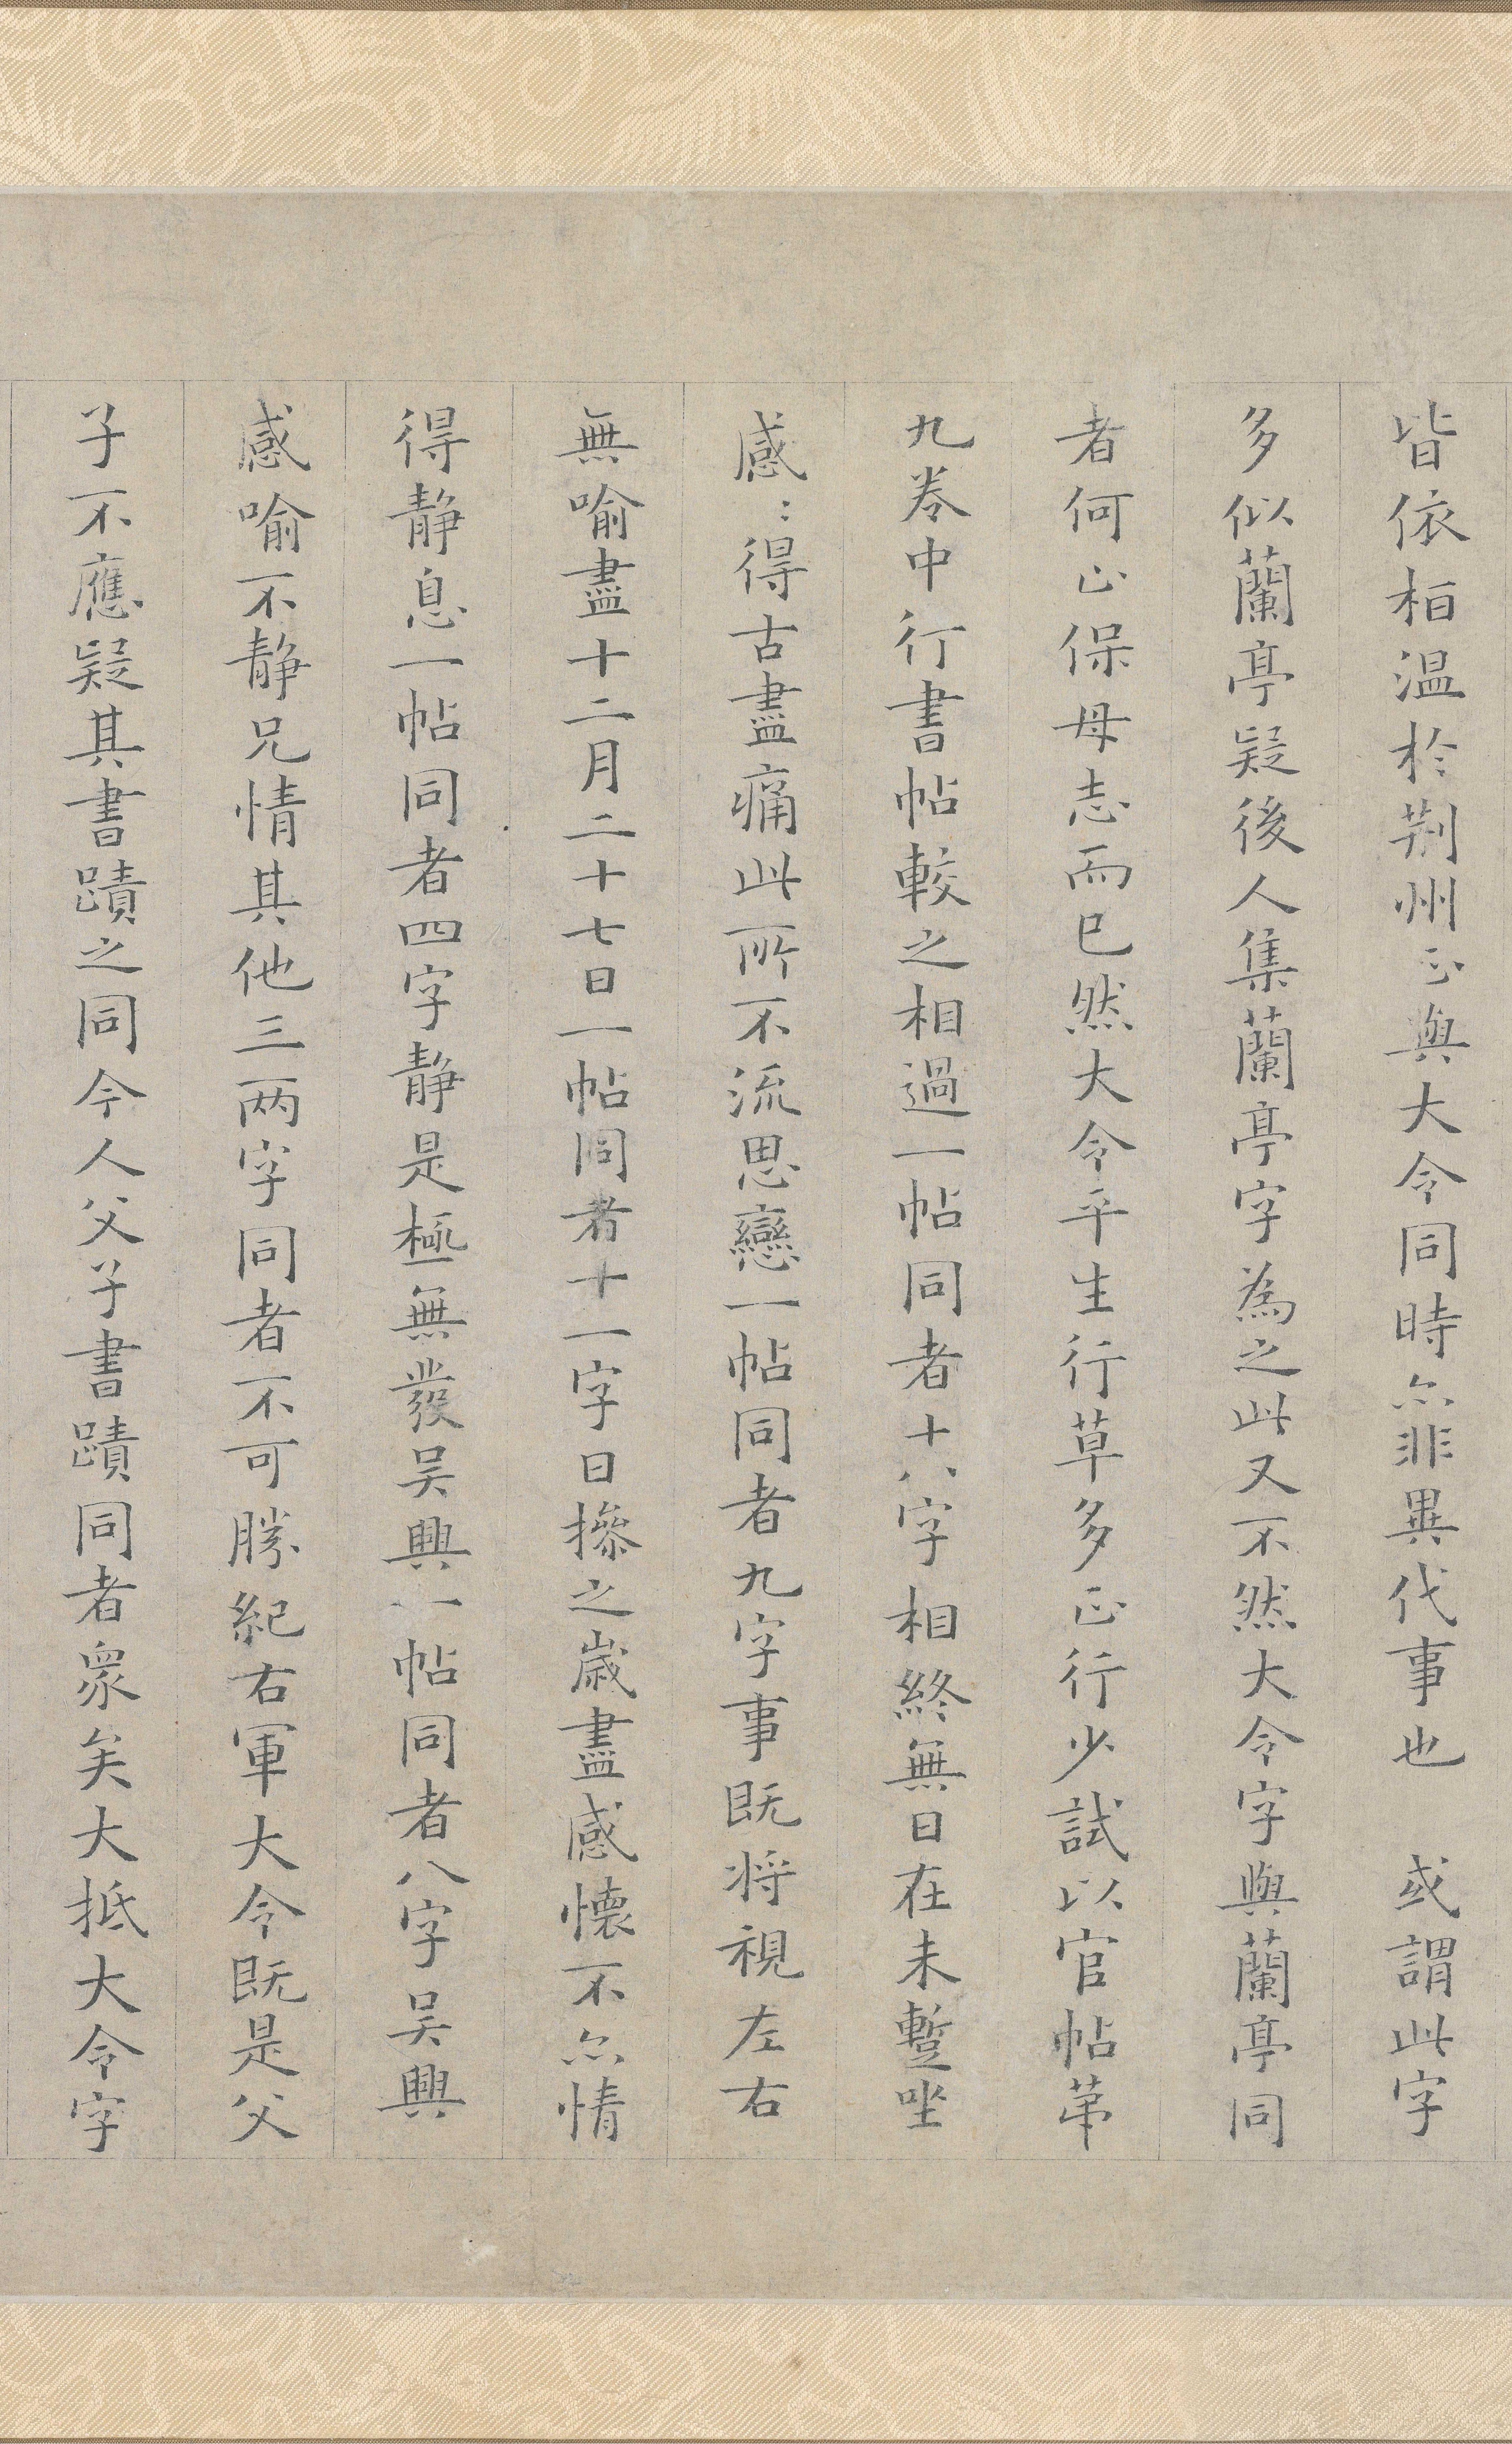 皆依栢温於荆州正與大令同時亦非異代事也　或謂此字
多似蘭亭疑後人集蘭亭字為之此又不然大令字與蘭亭同
者何止保母志而已然大令平生行草多正行少試以官帖苐
九卷中行書帖較之相過一帖同者十八字相終無日在未蹔坐
感〻得古盡痛此所不流思戀一帖同者九字事既将視左右
無喻盡十二月二十七日一帖同者十一字日摻之歳盡感懐不亦情
得静息一帖同者四字静是極無發吴興一帖同者八字吴興
感喻不静兄情其他三两字同者不可勝紀右軍大令既是父
子不應疑其書蹟之同今人父子書蹟同者衆矣大抵大令字